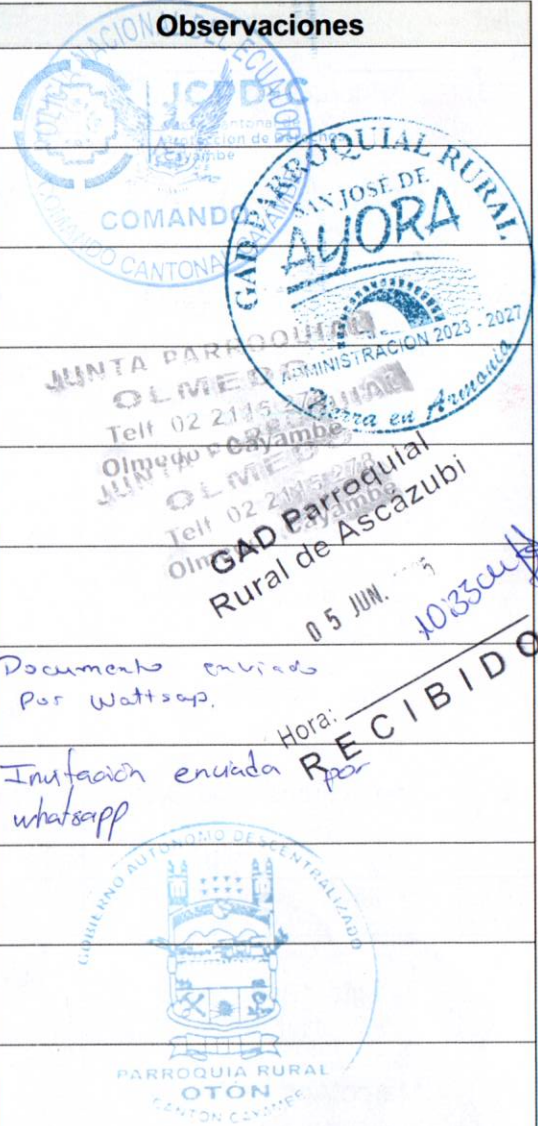 Observaciones
POLICIA NACIONAL DEL ECUADOR
JCPD-C
Protección de Derechos
Cayambe
COMANDO
COMANDO CANTONAL CAYAMBE
GAD PARROQUIAL RURAL
SAN JOSÉ DE
AYORA
ADMINISTRACIÓN 2023 - 2027
en Armonía
JUNTA PARROQUIAL
OLMEDO
Telf 02 2115 278
Olmedo - Cayambe
JUNTA PARROQUIAL
OLMEDO
Telf 02 2115 278
Olmedo - Cayambe
GAD Parroquial
Rural de Ascázubi
05 JUN.
10:33
Hora:
RECIBIDO
Documento enviado
Por Wattsap.
Invitación enviada por
whatsapp
GOBIERNO AUTONOMO DESCENTRALIZADO
PARROQUIA RURAL
OTÓN
CANTON CAYAMBE